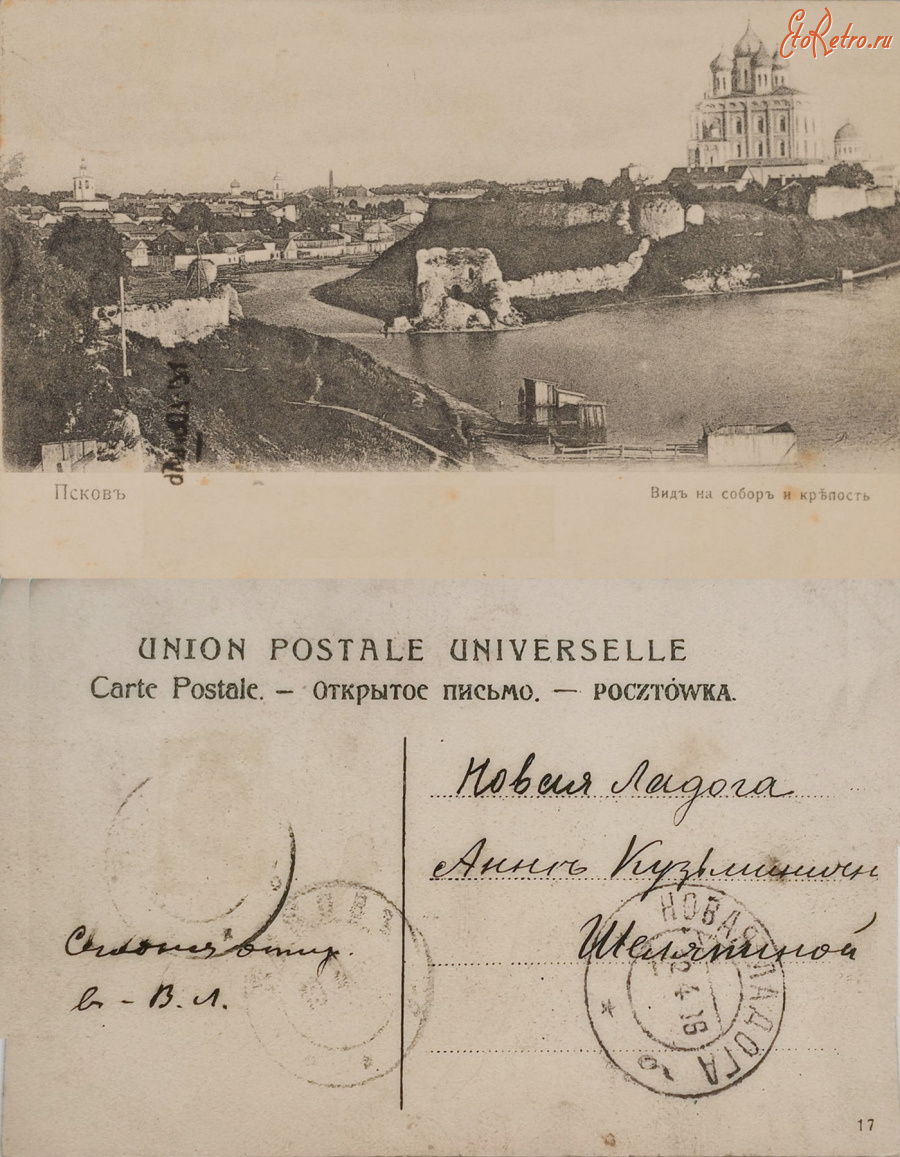 EtoRetro.ru
Псковъ
Видъ на соборъ и крѣпость
UNION POSTALE UNIVERSELLE
Carte Postale. — Открытое письмо. — POCZTÓWKA.
Новая Ладога
Аннѣ Кузьминичн
Шеляпиной
в - В. Л.
НОВАЯ ЛАДОГА
4 16
17